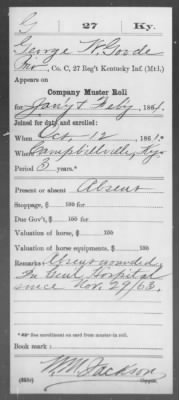 G | 27 | Ky.
George W. Goode
Priv, Co. C, 27 Reg't Kentucky Inf. (Mtd.)
Appears on
Company Muster Roll
for Jany & Feby, 1864.
Joined for duty and enrolled:
When Oct. 12, 1861.*
Where Campbellville, Ky.
Period 3 years.*
Present or absent Absent
Stoppage, $ 100 for
Due Gov't, $ 100 for
Valuation of horse, $ 100
Valuation of horse equipments, $ 100
Remarks: Absent wounded
In Genl. Hospital
since Nov. 29/63.
* See enrollment on card from muster-in roll.
Book mark:
W M Jackson
Copyist.